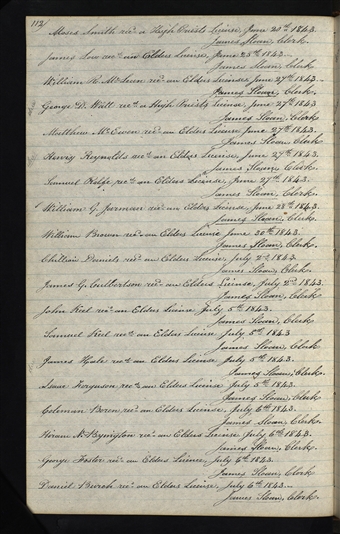 112
Moses Smith recd. a High Priests License, June 24th 1843.
James Sloan, Clerk.
James Low recd. an Elders License, June 25th
James Sloan, Clerk.
William R. McLean recd. an Elders License June 27th 1843.
James Sloan, Clerk.
George D. Watt recd. a High Priests License, June 27th 1843.
James Sloan, Clerk.
Matthew McEwen recd. an Elders License June 27th 1843.
James Sloan, Clerk.
Henry Reynolds recd. an Elders License, June 27th 1843.
James Sloan, Clerk.
Samuel recd. an Elders License, June 27th 1843.
James Sloan, Clerk.
William G. Jarman recd. an Elders License, June 28th 1843.
James Sloan, Clerk.
William Brown recd. an Elders License June 30th 1843.
James Sloan, Clerk.
Daniels recd. an Elders License, July 2nd 1843.
James Sloan, Clerk.
James G. Culbertson recd. an Elders License, July 2nd 1843.
James Sloan, Clerk.
John Keel recd. an Elders License July 5th 1843.
James Sloan, Clerk.
Samuel Keel recd. an Elders License, July 5th 1843
James Sloan, Clerk
James Hale recd. an Elders License, July 5th 1843.
James Sloan, Clerk.
Isaac Ferguson recd. an Elders License July 5th 1843.
James Sloan, Clerk.
Coleman Boren recd. an Elders License, July 6th 1843.
James Sloan, Clerk.
Hiram N. Byington recd. an Elders License July 6th 1843.
James Sloan, Clerk.
George Foster recd. an Elders License, July 6th 1843.
James Sloan, Clerk
Daniel Burch recd. an Elders License, July 6th 1843.
James Sloan, Clerk.